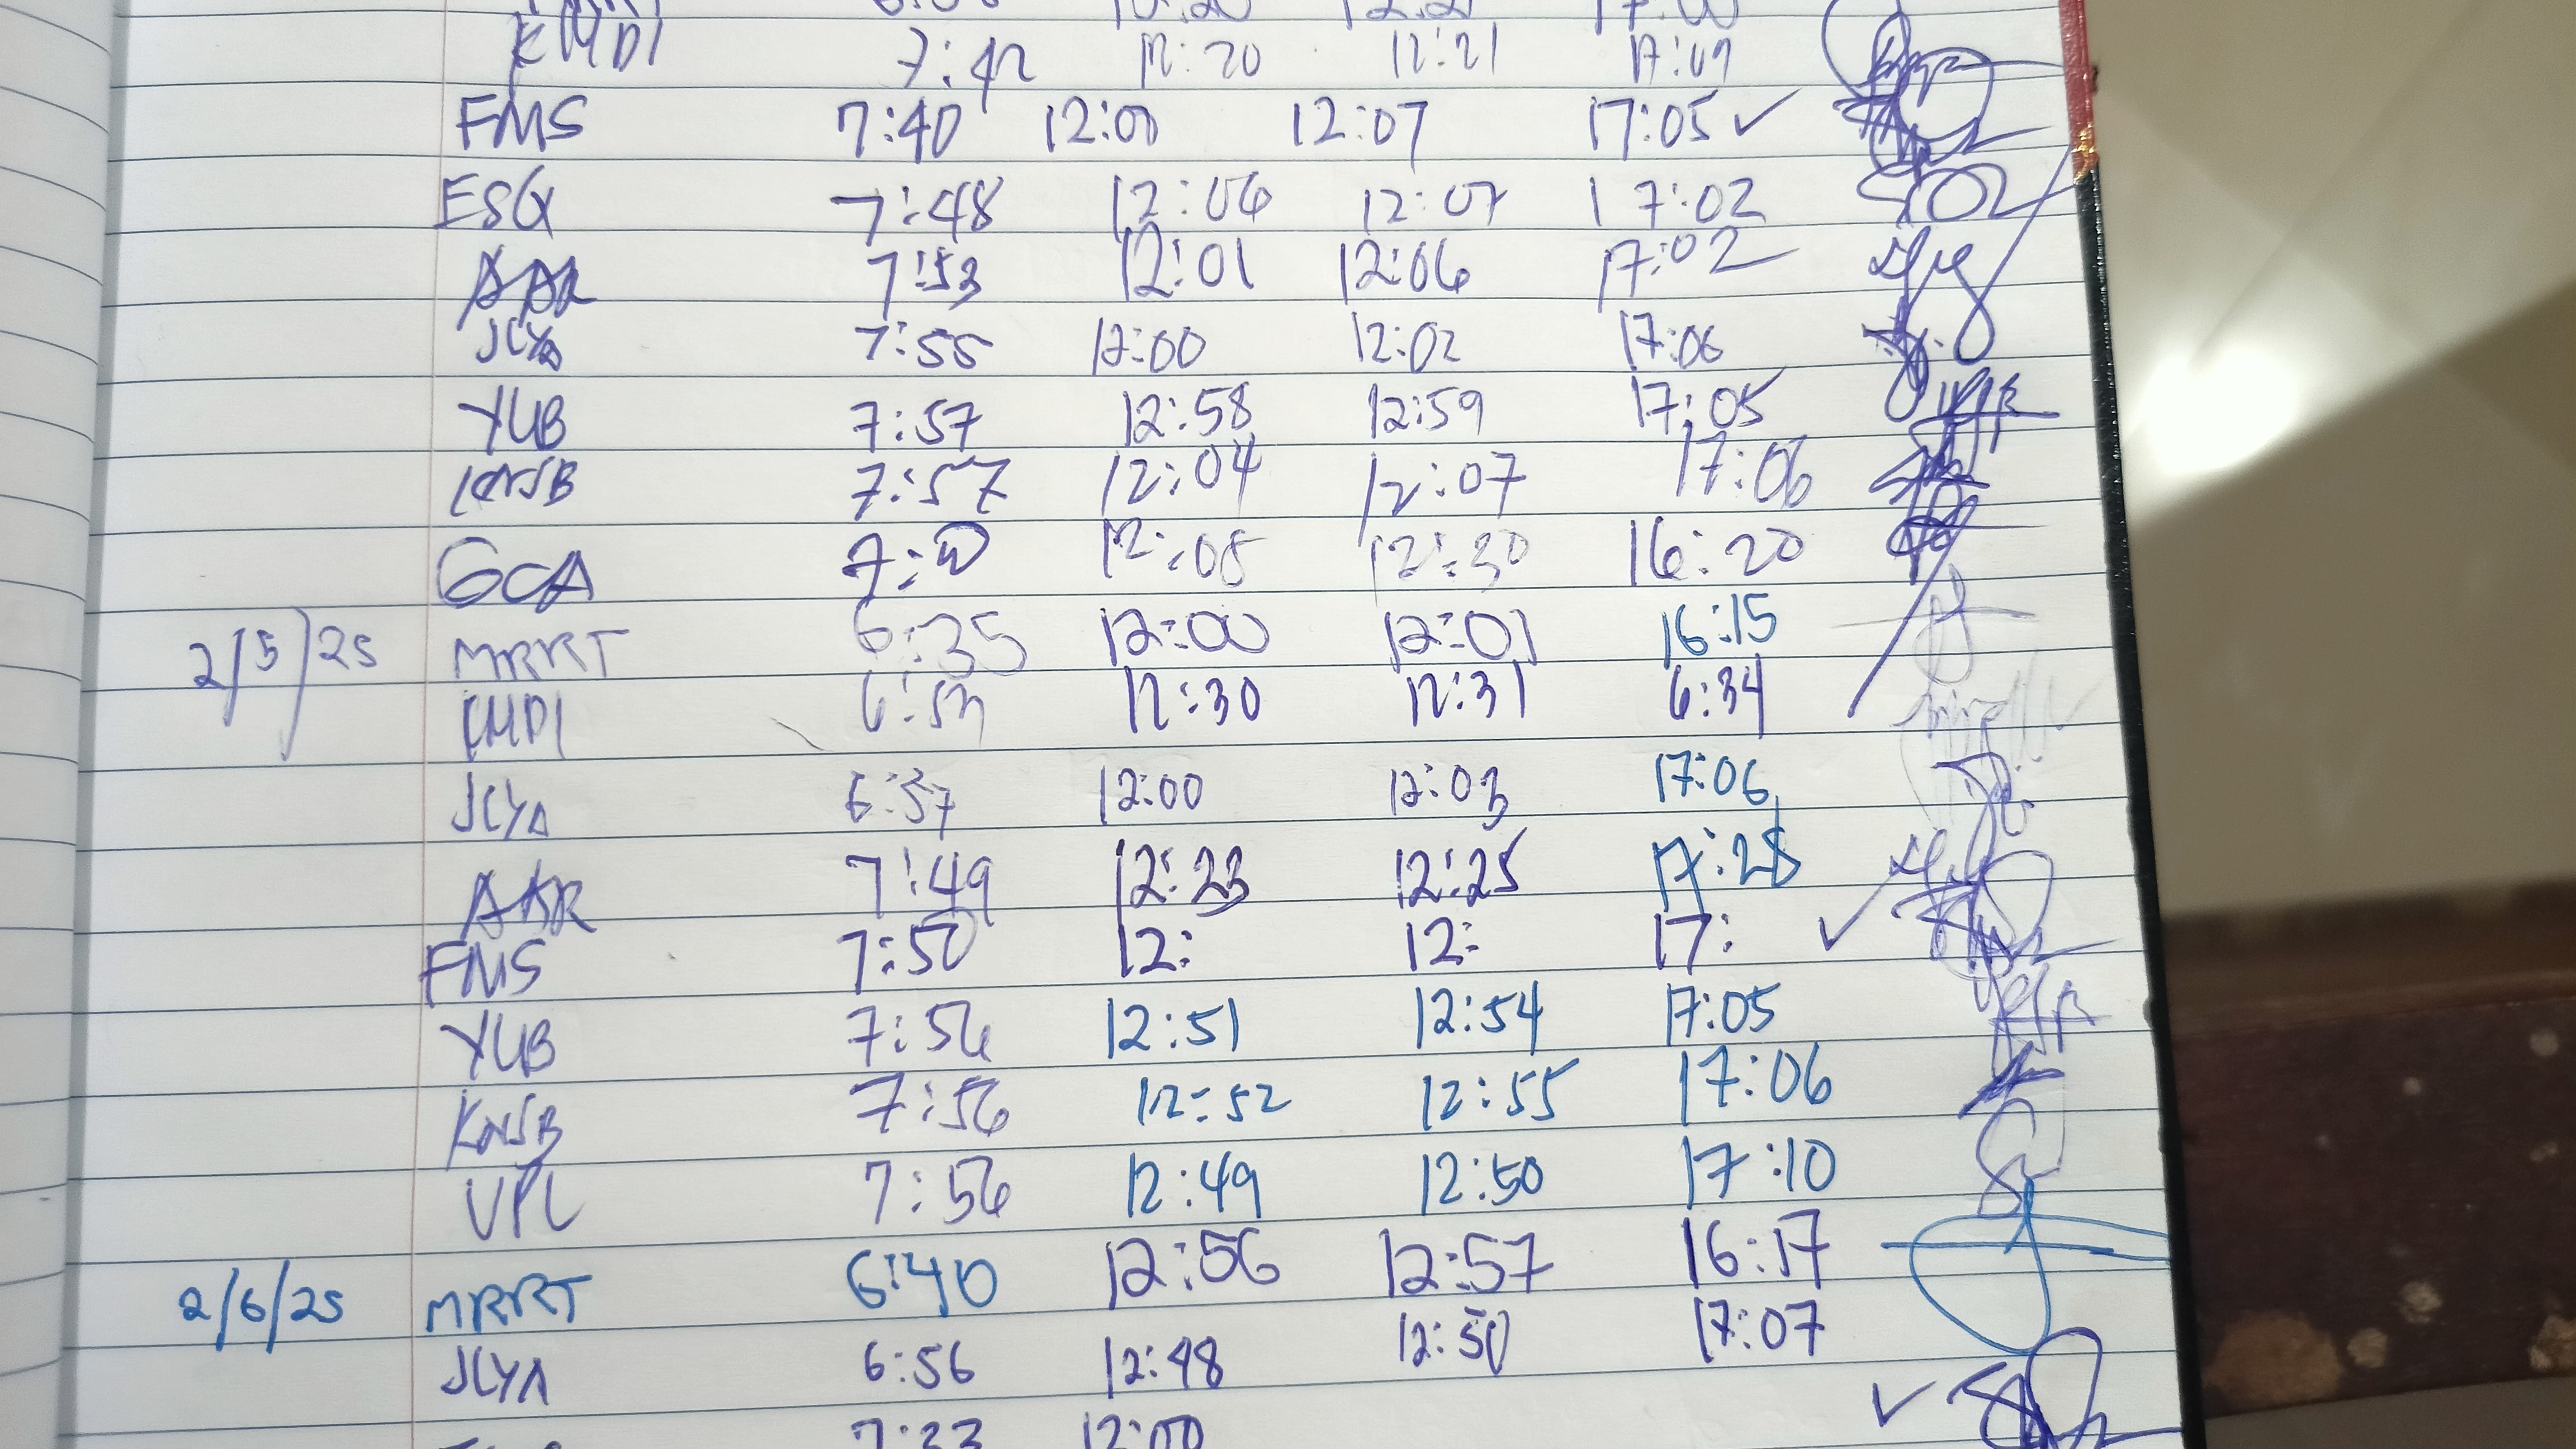 KMDI 7:42 12:20 12:21 17:09
FMS 7:40 12:00 12:07 17:05 ✓
ESG 7:48 12:06 12:07 17:02
AAR 7:53 12:01 12:06 17:02
JCYA 7:55 12:00 12:02 17:06
YUB 7:57 12:58 12:59 17:05
KNSB 7:57 12:04 12:07 17:06
GCA 12:08 12:30 16:20
2/5/25 MRRT 6:35 12:00 12:01 16:15
KMDI 6:53 12:30 12:31 6:34
JCYA 6:57 12:00 12:03 17:06
AAR 7:49 12:23 12:25 17:28
FMS 7:50 12: 12: 17: ✓
YUB 7:56 12:51 12:54 17:05
KNSB 7:56 12:52 12:55 17:06
VPL 7:56 12:49 12:50 17:10
2/6/25 MRRT 6:40 12:56 12:57 16:17
JCYA 6:56 12:48 12:50 17:07
7:33 12:00 ✓